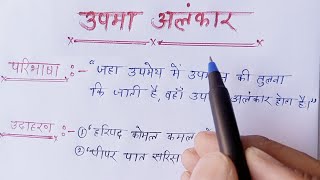 उपमा अलंकार
परिभाषा :- "जहा उपमेय में उपमान की तुलना
कि जाती है, वहाँ अलंकार होता है।"
उदाहरण :- ① "हरिपद कोमल कमल
② "पीपर पात सरिस